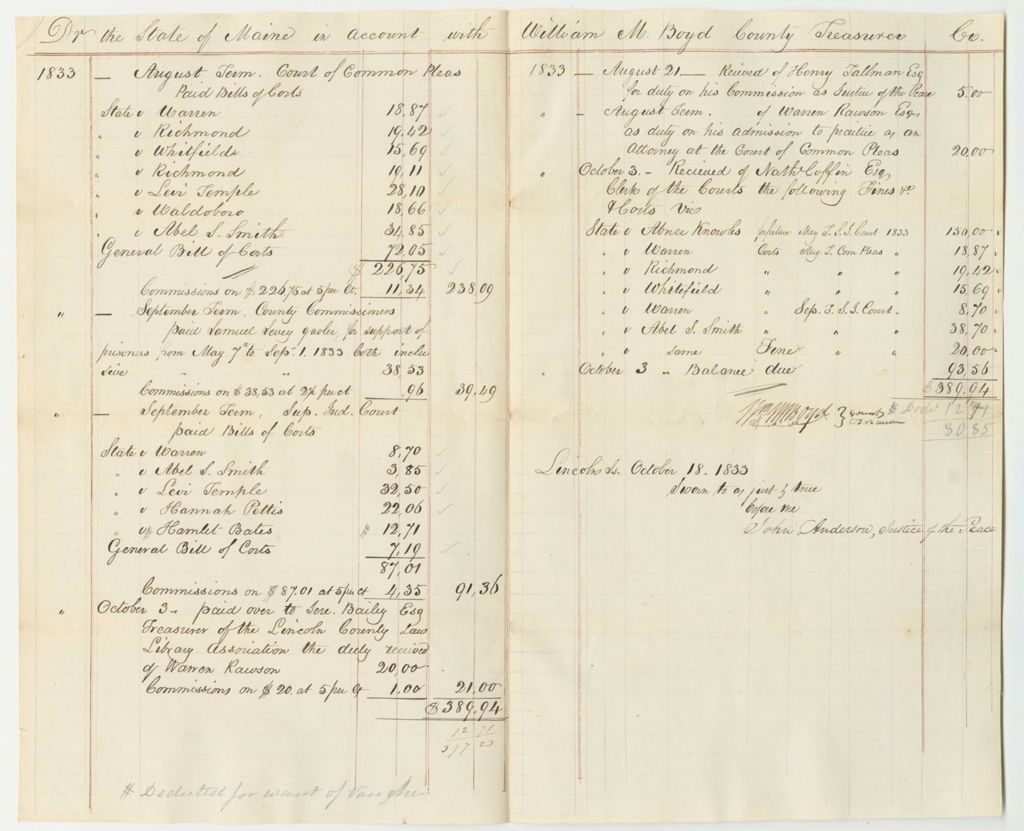 Dr the State of Maine in account with
1833 — August Term. Court of Common Pleas
Paid Bills of Costs
State v Warren 18,87
" v Richmond 19,42
" v Whitfield 15,69
" v Richmond 19,11
" v Levi Temple 28,10
" v Waldoboro 18,66
" v Abel S. Smith 34,85
General Bill of Costs 72,05
$ 226,75
Commissions on $226,75 at 5 per Ct. 11,34 238,09
" — September Term, County Commissioners
paid Samuel Levey goaler, for support of
prisoners from May 7th to Sept. 1. 1833 both inclu
sive 38,53
Commissions on $38,53 at 2½ per ct ,96 39,49
" — September Term, Sup. Jud. Court
paid Bills of Costs
State v Warren 8,70
" v Abel S. Smith 3,85
" v Levi Temple 32,50
" v Hannah Pettis 22,06
" v # Hamlet Bates # 12,71
General Bill of Costs 7,19
87,01
Commissions on $87,01 at 5 per ct 4,35 91,36
" October 3 " paid over to Jere. Baily Esq
Treasurer of the Lincoln County Law
Library Association the duty received
of Warren Rawson 20,00
Commissions on $20, at 5 per Ct 1,00 21,00
$389,94
12 71
377 23
# Deducted for want of Voucher
William M. Boyd County Treasurer Cr.
1833 — August 21 — Recieved of Henry Tallman Esq
for duty on his Commission as Justice of the Peace 5,00
" — August Term. of Warren Rawson Esq.
as duty on his admission to practice as an
Attorney at the Court of Common Pleas 20,00
" October 3. — Recieved of Nathl Coffin Esq
Clerk of the Courts the following Fines &c
& Costs Viz
State v Abner Knowles forfeiture May T. S. J. Court 1833 150,00
" v Warren Costs Aug. T. Com Pleas " 18,87
" v Richmond " " " 19,42
" v Whitefield " " " 15,69
" v Warren " Sep. T. S. J. Court. " 8,70
" v Abel S. Smith " " " 38,70
" v same Fine " " 20,00
" October 3 " Balance due 93,56
$389,94
Wm M Boyd } County Treasurer
# Dedu 12 71
80 85
Lincoln Ss. October 18. 1833
Sworn to as just & true
before me
John Anderson, Justice of the Peace